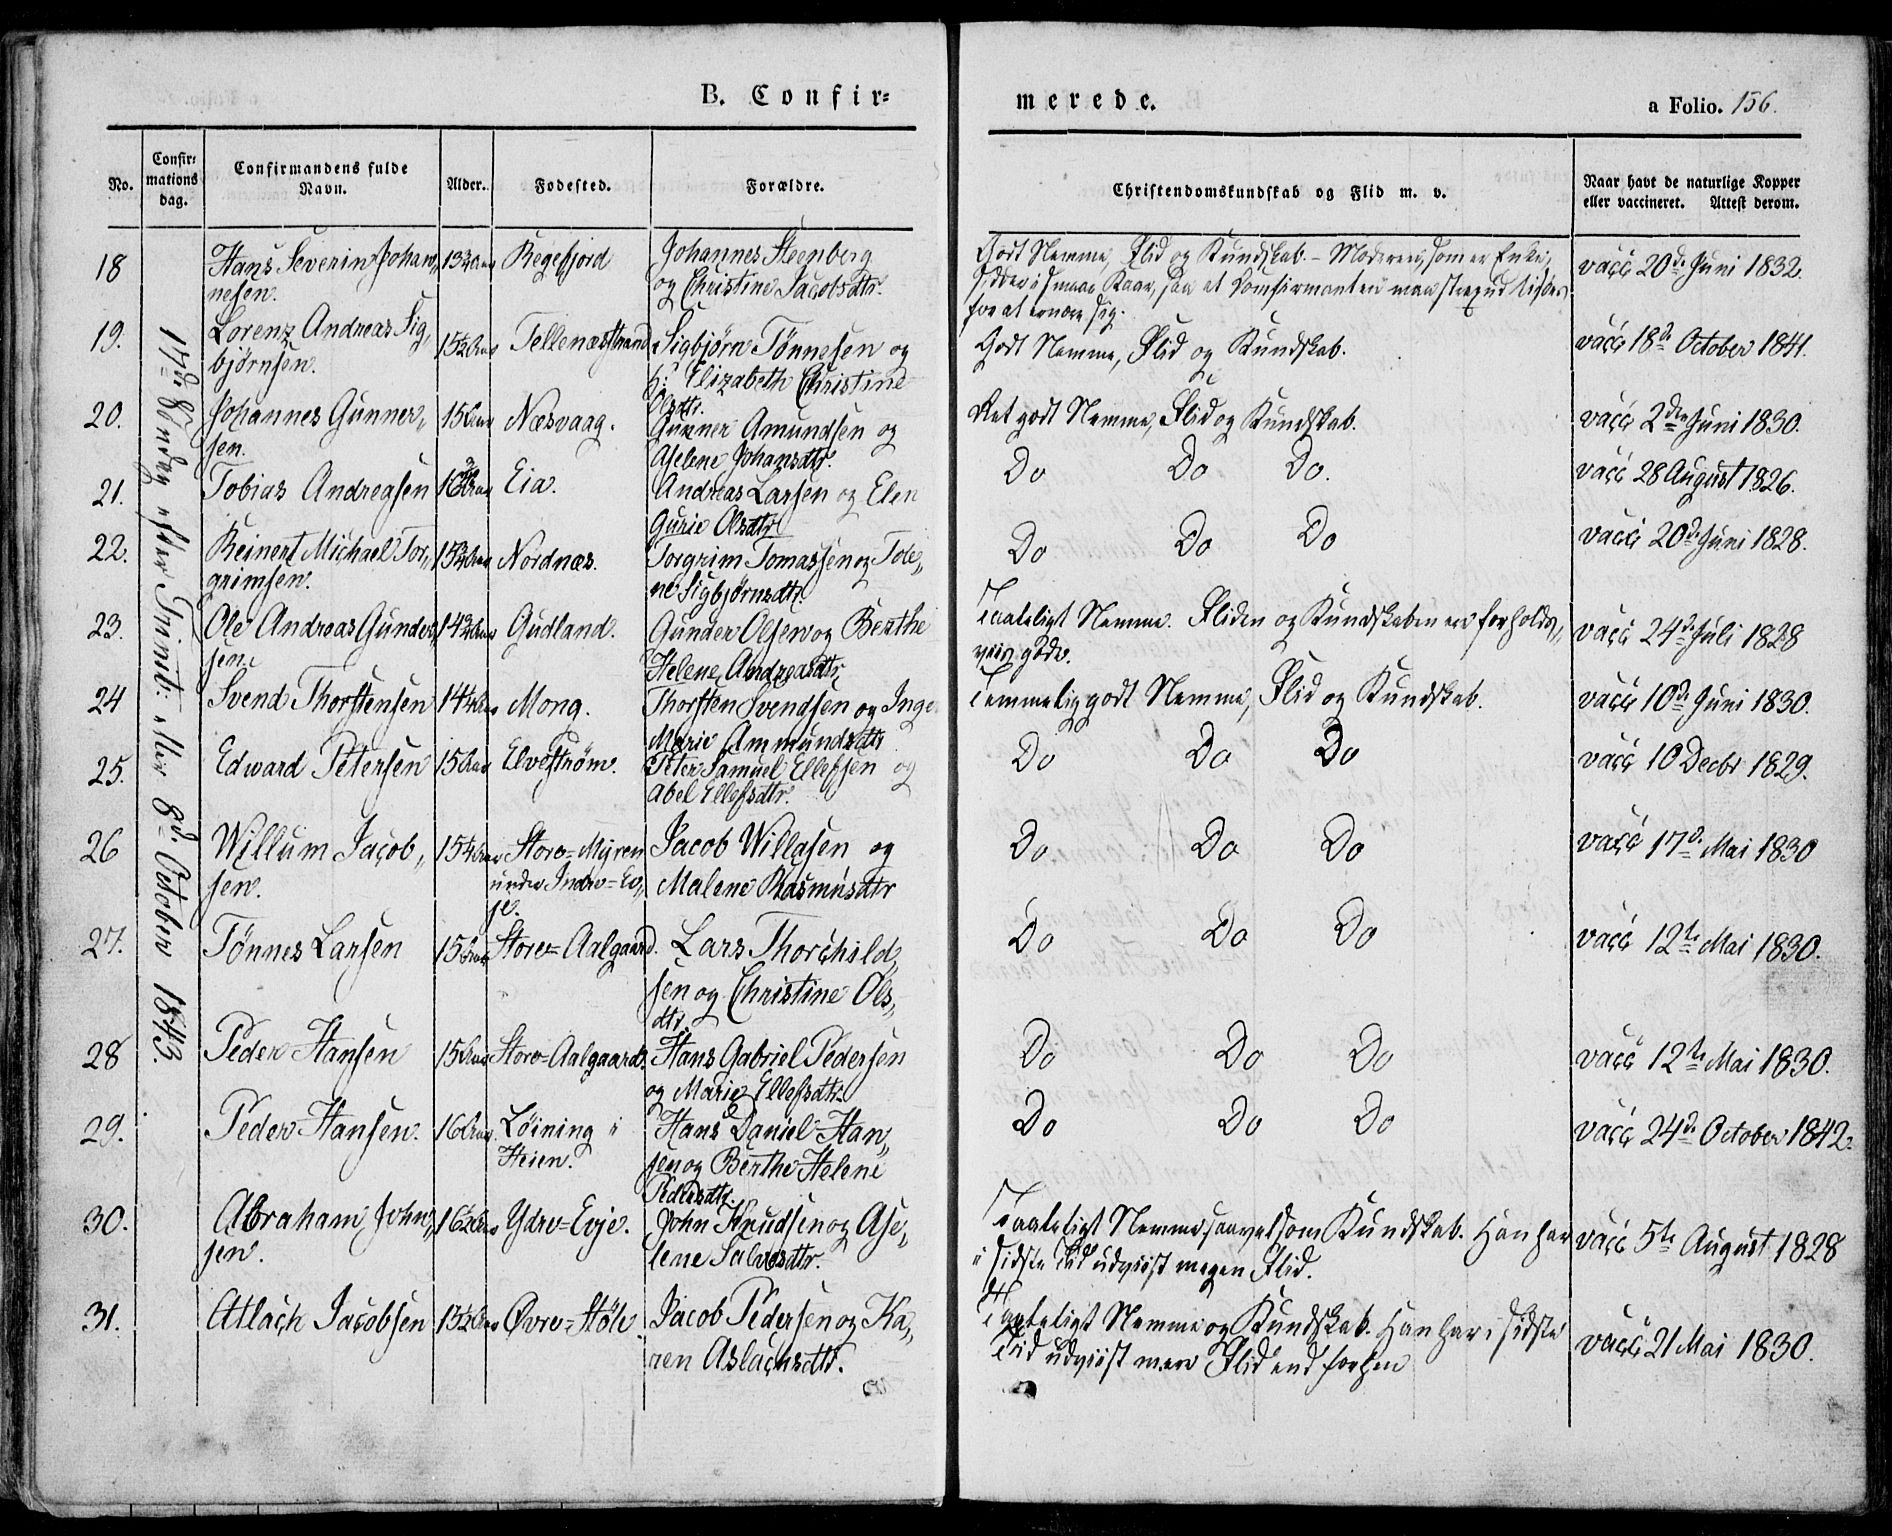 B. Confir=
merede.
a Folio. 156.
No.
Confir=
mations
dag.
Confirmandens fulde
Navn.
Alder.
Fødested.
Forældre.
Christendomskundskab og Flid m. v.
Naar havt de naturlige Kopper
eller vaccineret. Attest derom.
17de Søndag efter Trinit: eller 8d. October 1843.
18 Hans Severin Johan„ Regefjord Johannes Steenberg
nesen. og Christine Jacobsdtr.
Godt Nemme, Flid og Kundskab. – Moderen, som er Enke,
sidder i smaae Kaar, saa at Confirmanten maa
for at ernære sig.
vacc 20de Juni 1832.
19. Lorenz Andreas Sig„ 15½ Aar Tellenæsstrand Sigbjørn Tønnesen og
bjørnsen. Elizabeth Christine
Olsdtr.
Godt Nemme, Flid og Kundskab.
vacc 18de October 1841.
20. Johannes Gunner„ 15 Aar Næsvaag. Gunner Amundsen og
sen. Aselene Johansdtr.
Ret godt Nemme, Flid og Kundskab.
vacc 2den Juni 1830.
21. Tobias Andreasen Eia. Andreas Larsen og Elen
Gurie Olsdtr
Do Do Do.
vacc 28 August 1826.
22. Reinert Michael Tor„ Nordnæs. Torgrim Tomassen og Tole„
grimsen. ne Sigbjørnsdtr.
Do Do Do
vacc 20de Juni 1828.
23. Ole Andreas Gunder„ Gudland. Gunder Olsen og Berthe
sen. Helene Andreasdtr
Taaleligt Nemme. Fliden og Kundskaben er forholds„
viis gode.
vacc 24de Juli 1828
24 Svend Thorstensen Mong. Thorsten Svendsen og Inge
Marie Ammundsdtr
Temmelig godt Nemme, Flid og Kundskab.
vacc 10de Juni 1830.
25. Edward Petersen 15 Aar Elvestrøm. Peter Samuel Ellefsen og
Abel Ellefsdtr.
Do Do Do
vacc 10 Decbr 1829.
26 Willum Jacob„ Store=Myren Jacob Willasen og
sen. under Indre=Ev„ Malene Rasmusdtr
je.
Do Do Do
vacc 17d. Mai 1830
27. Tønnes Larsen 15 Aar Store=Aalgaard. Lars Thorchild„
sen og Christine Ols„
dtr.
Do Do Do
vacc 12te Mai 1830.
28 Peder Hansen 15 Aar Store=Aalgaard. Hans Gabriel Pedersen
og Marie Ellefsdtr.
Do Do Do
vacc 12te Mai 1830.
29. Peder Hansen. 16 Aar. Løining i Hans Daniel Han„
Heien. sen og Berthe Helene
Pedersdtr.
Do Do Do
vacc 24de October 1842.
30. Abraham John„ 16½ Aar Ydre=Evje. John Knudsen og Ase„
sen. lene Salvesdtr.
Taaleligt Nemme saavelsom Kundskab. Han har
i sidste Tid udviist megen Flid.
vacc 5te August 1828
31. Atlach Jacobsen 15½ Aar Øvre=Støle. Jacob Pedersen og Ka„
ren Aslachsdtr.
Taaleligt Nemme og Kundskab. Han har i sidste
Tid udviist mere Flid end forhen
vacc 21 Mai 1830.